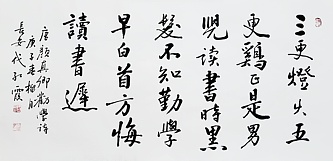 三更燈火五
更鷄正是男
兒讀書時黑
髮不知勤學
早白首方悔
讀書遲
唐顏真卿勸學詩
庚子春楊月
長安代紅霞